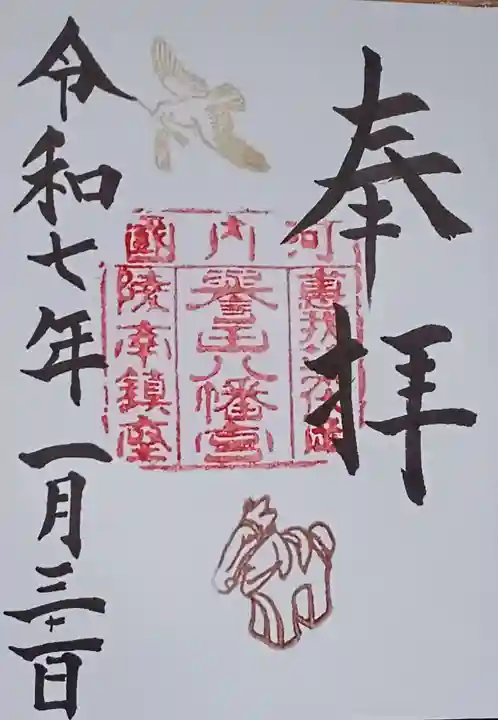 奉拝
河内國
譽田八幡宮
陵南鎮座
令和七年一月三十一日